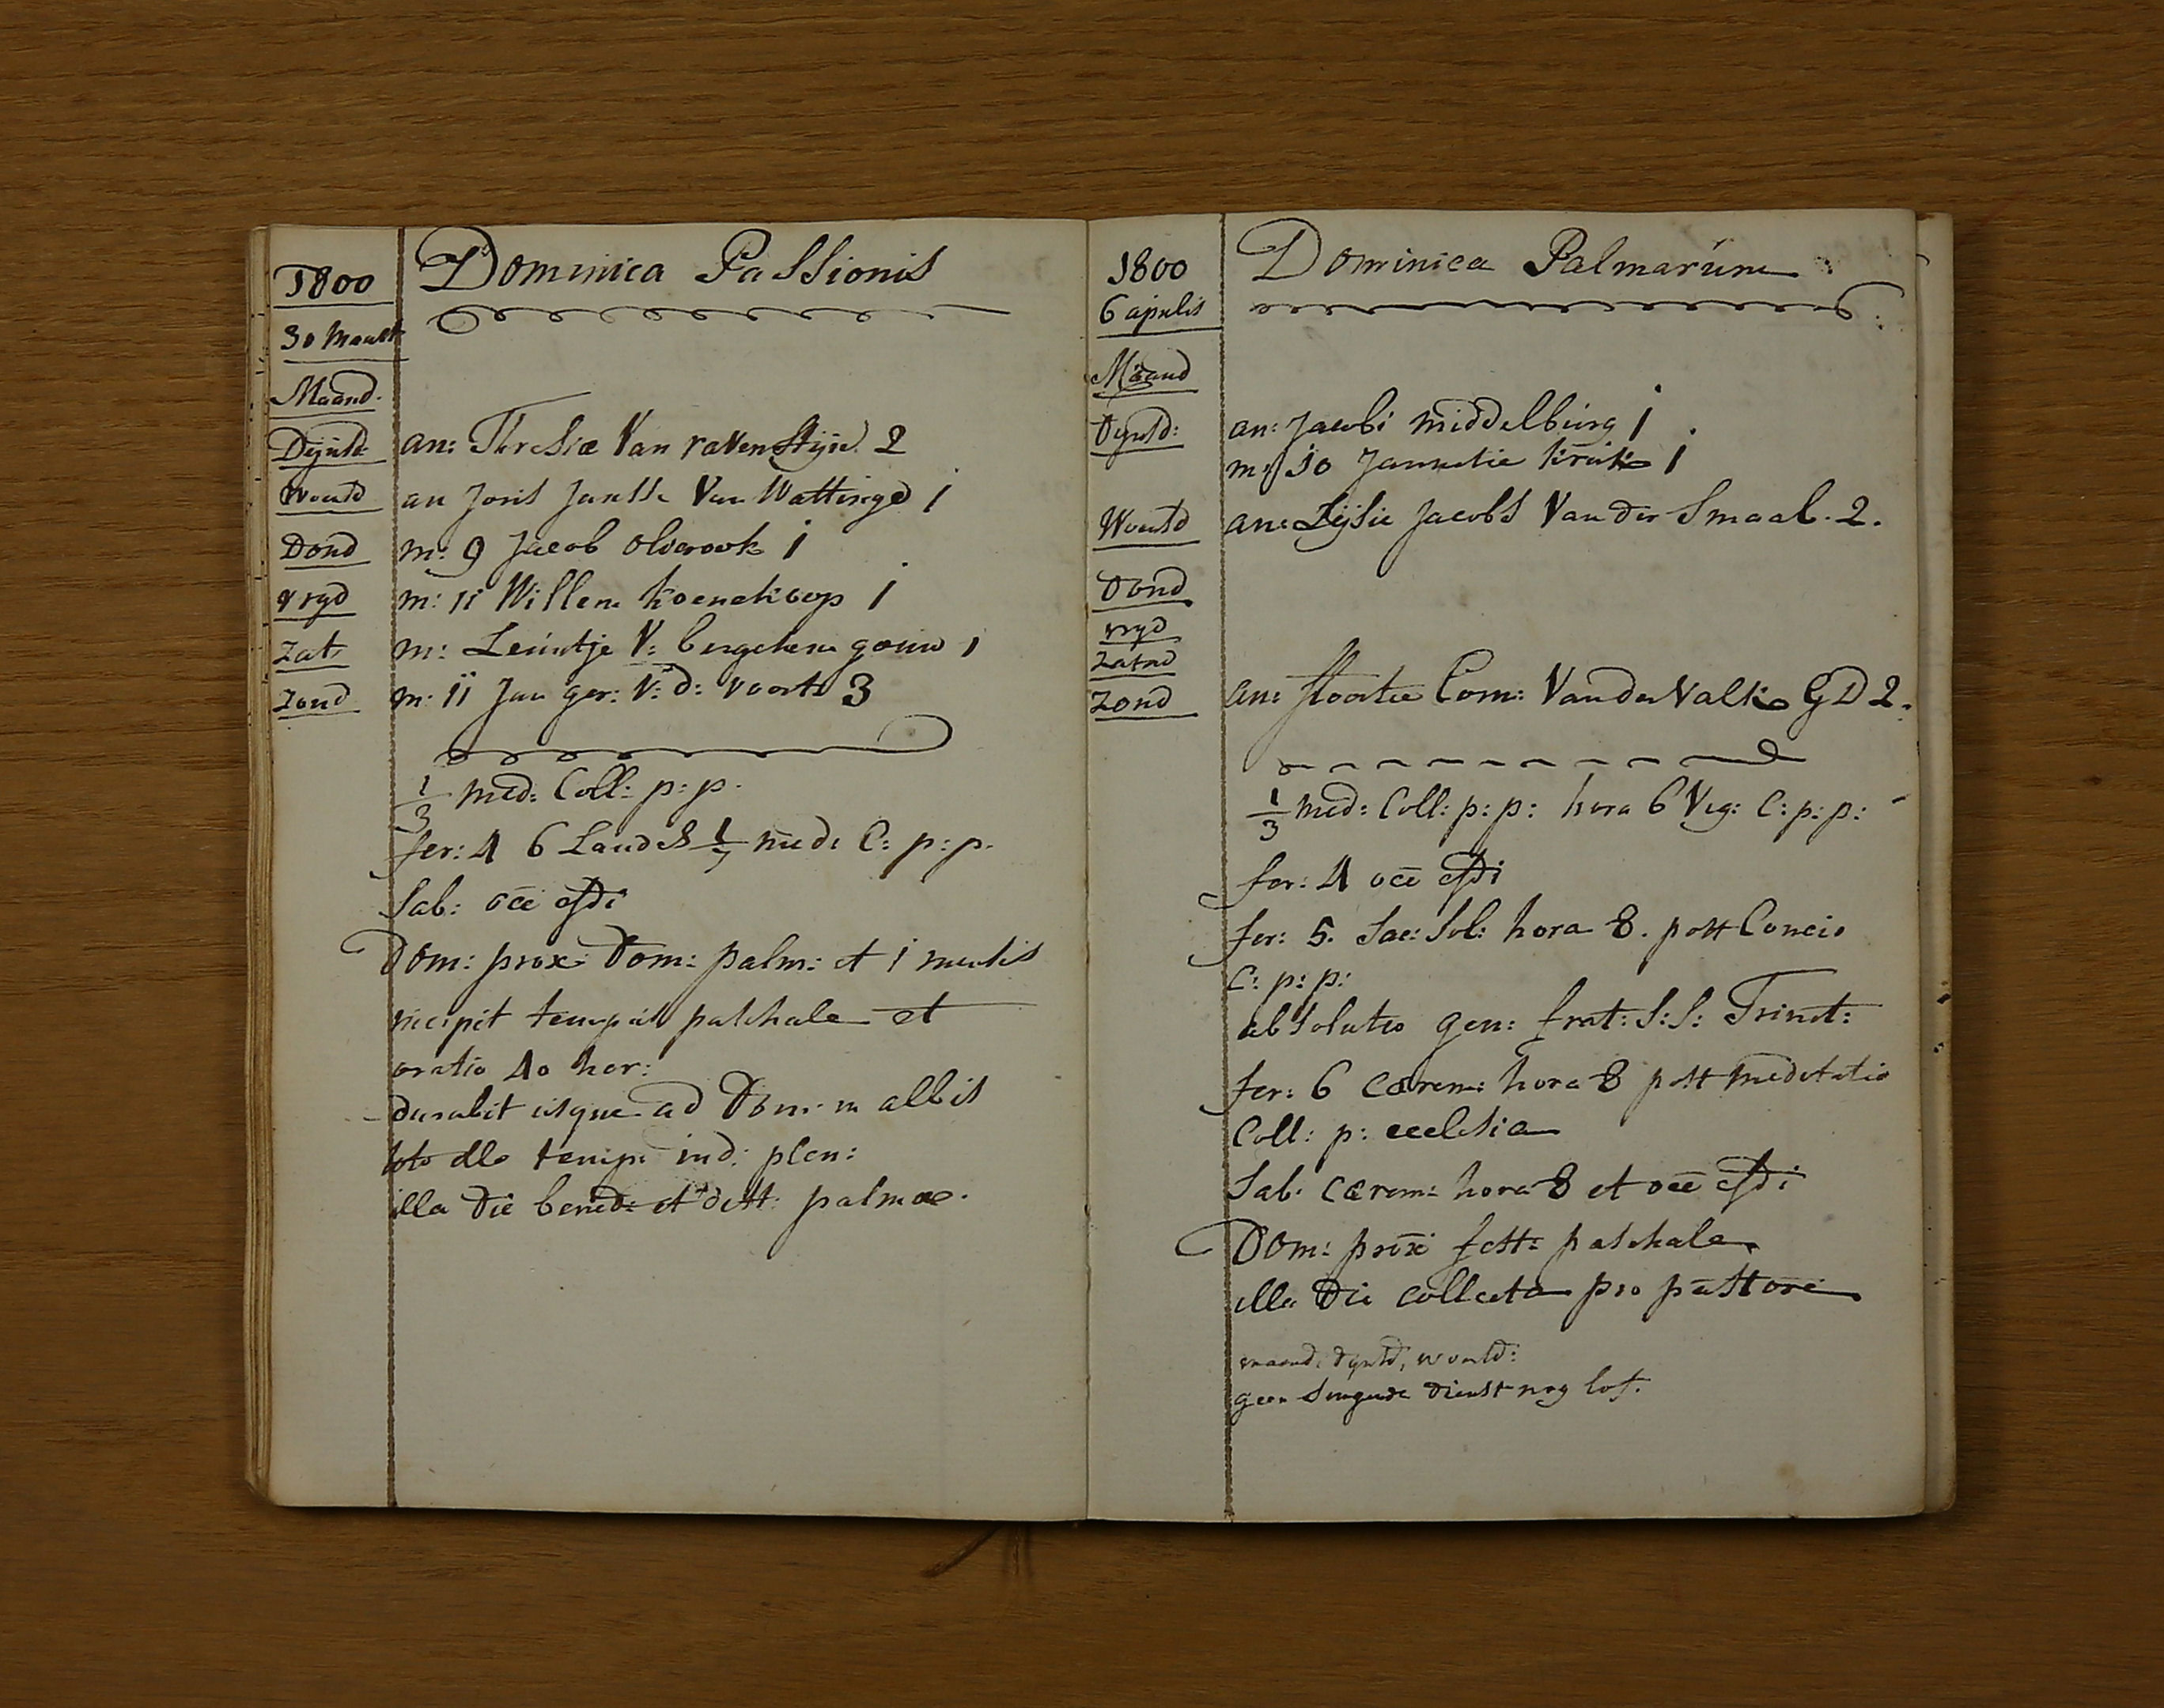 1800
Dominica Passionis
30 Maart
Maand.
Dijnsd an: Thresiæ Van ravensteijn 2
Woensd an Joris Jansse Van Wattinge 1
Dond m: 9 Jacob olierook 1
Vryd m: 11 Willem koenekoop 1
Zat m: Leuntje V: bergehen gouw 1
Zond m: 11 Jan ger: V: d: voort 3
1/3 med: Coll: p: p.
fer: 4 6 Laudes 1/7 med: C: p: p.
Sab: occ
Dom: prox: Dom: palm: et 1 mensis
incipit tempus paschale et
oratio 40 hor:
durabit usque ad Dom: in albis
toto illo temp: ind: plen:
illa die bened: et dist: palmae.
1800
Dominica Palmarum
6 aprilis
Maand
Dynsd: an: Jacobi middelburg 1
m: 10 Jannetie kruik 1
Woensd an: Lijsie Jacobs Van der Smaal. 2.
Dond
vryd
Zatrd
Zond an: floortie Corn: Van der Valk GD 2.
1/3 med: Coll: p: p: hora 6 Vig: C: p: p:
fer: 4 occ
fer: 5. Sac: Sol: hora 8. post Concio
C: p: p:
absolutio gen: frat: S: S: Trinit:
fer: 6 cærem: hora 8 post meditatio
Coll: p: ecclesia
Sab: cærem: hora 8 et occ
Dom: prox: fest: paschale
illa die collecta pro pastore
maand: dynsd, woensd:
geen singende dienst nog lof.